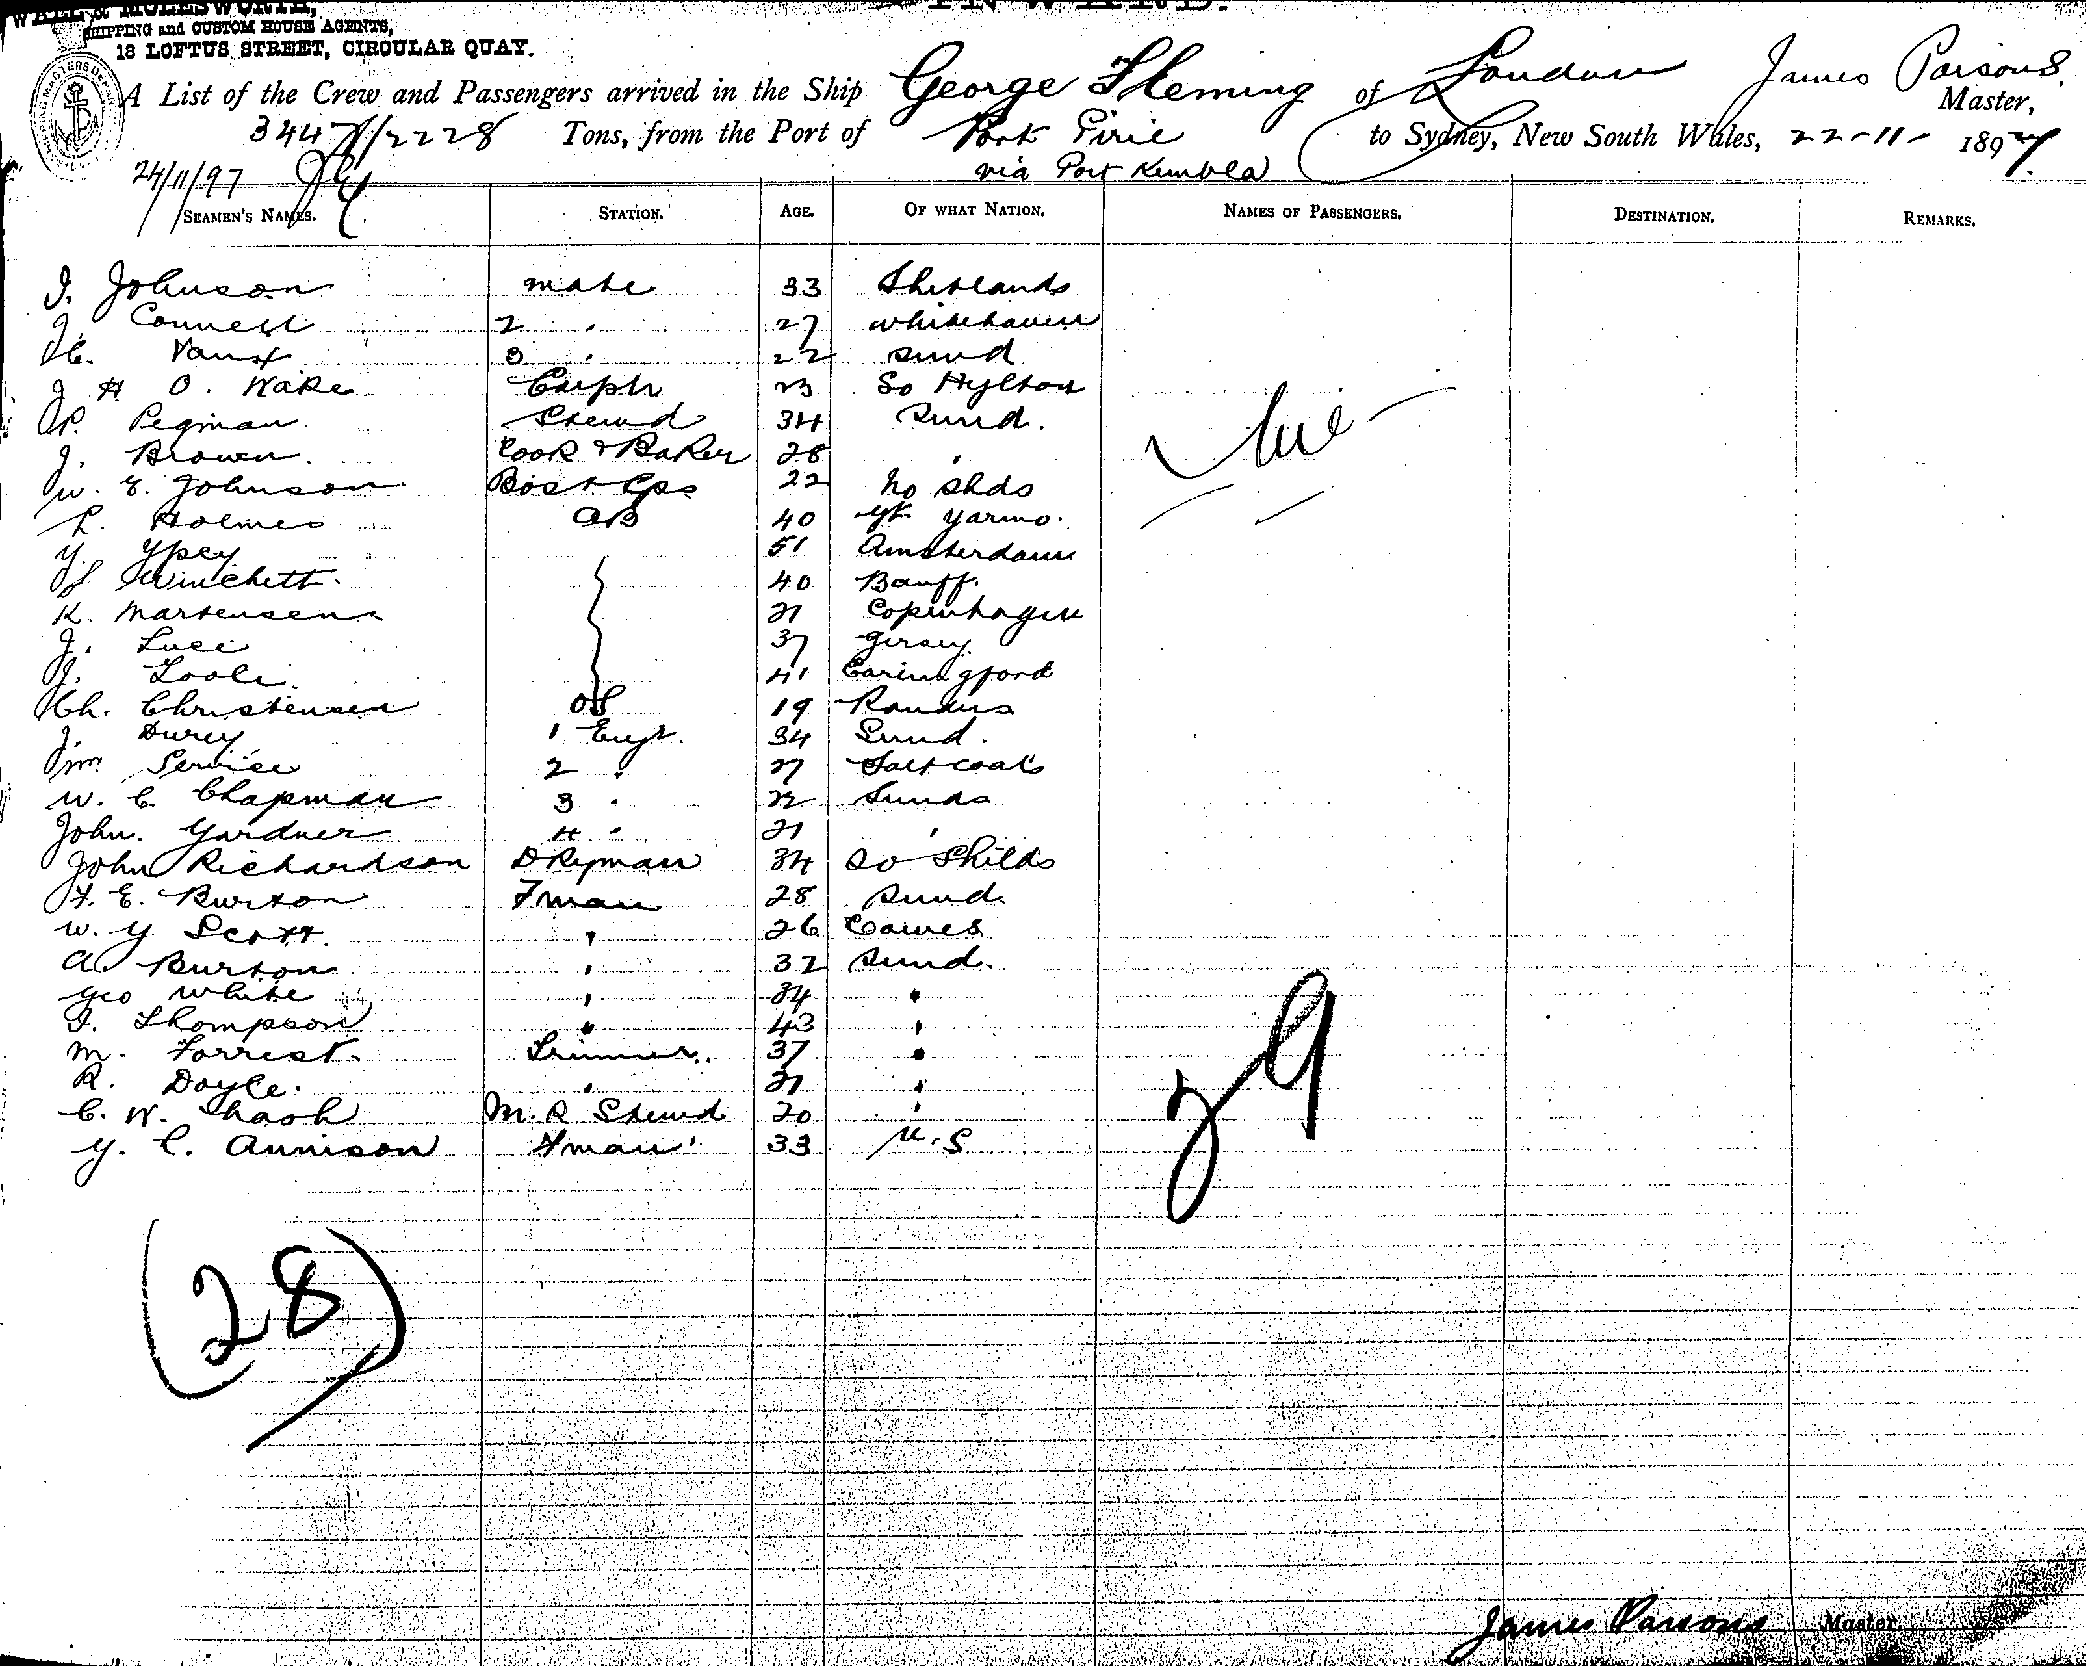 INWARD.
WALL & MOLESWORTH,
SHIPPING and CUSTOM HOUSE AGENTS,
18 LOFTUS STREET, CIRCULAR QUAY.
A List of the Crew and Passengers arrived in the Ship George Fleming of London James Parsons Master,
3447/2228 Tons, from the Port of Port Pirie to Sydney, New South Wales, 22-11-1897
24/11/97 via Port Kembla
SEAMEN'S NAMES. STATION. AGE. OF WHAT NATION. NAMES OF PASSENGERS. DESTINATION. REMARKS.
J. Johnson mate 33 Shetlands
J. Connell 2 " 27 Whitehaven
3 " 22 Sund
J H O. Wake 23 So Hylton
P. Pegman Stewd 34 Sund.
J. Brown. Cook & Baker 28 "
W. E. Johnson 22 No Shds
L. Holmes AB 40 Gt Yarmo.
Y. Ypey 51 Amsterdam
40 Banff.
K. Martensen 21 Copenhagen
J. Luce 37 Jersey
J. 41
Ch. Christensen OS 19 Randers
J. Durey 1 Engr. 34 Sund.
Jm Service 2 " 27 Saltcoats
W. C. Chapman 3 " 22 Sunds
John. Gardner 4 " 21 "
John Richardson Dkyman 34 So Shilds
F. E. Burton Fman 28 Sund.
W. Y Scott. " 26
A. Burton " 32 Sund.
Geo White " 34 "
J. Thompson " 43 "
M. Forrest. Trimmer. 37 "
R. Doyle. " 21 "
C. W. M. R Stewd 20 "
Y. C. Annison Fman 33 U.S
29
(28)
James Parsons Master.